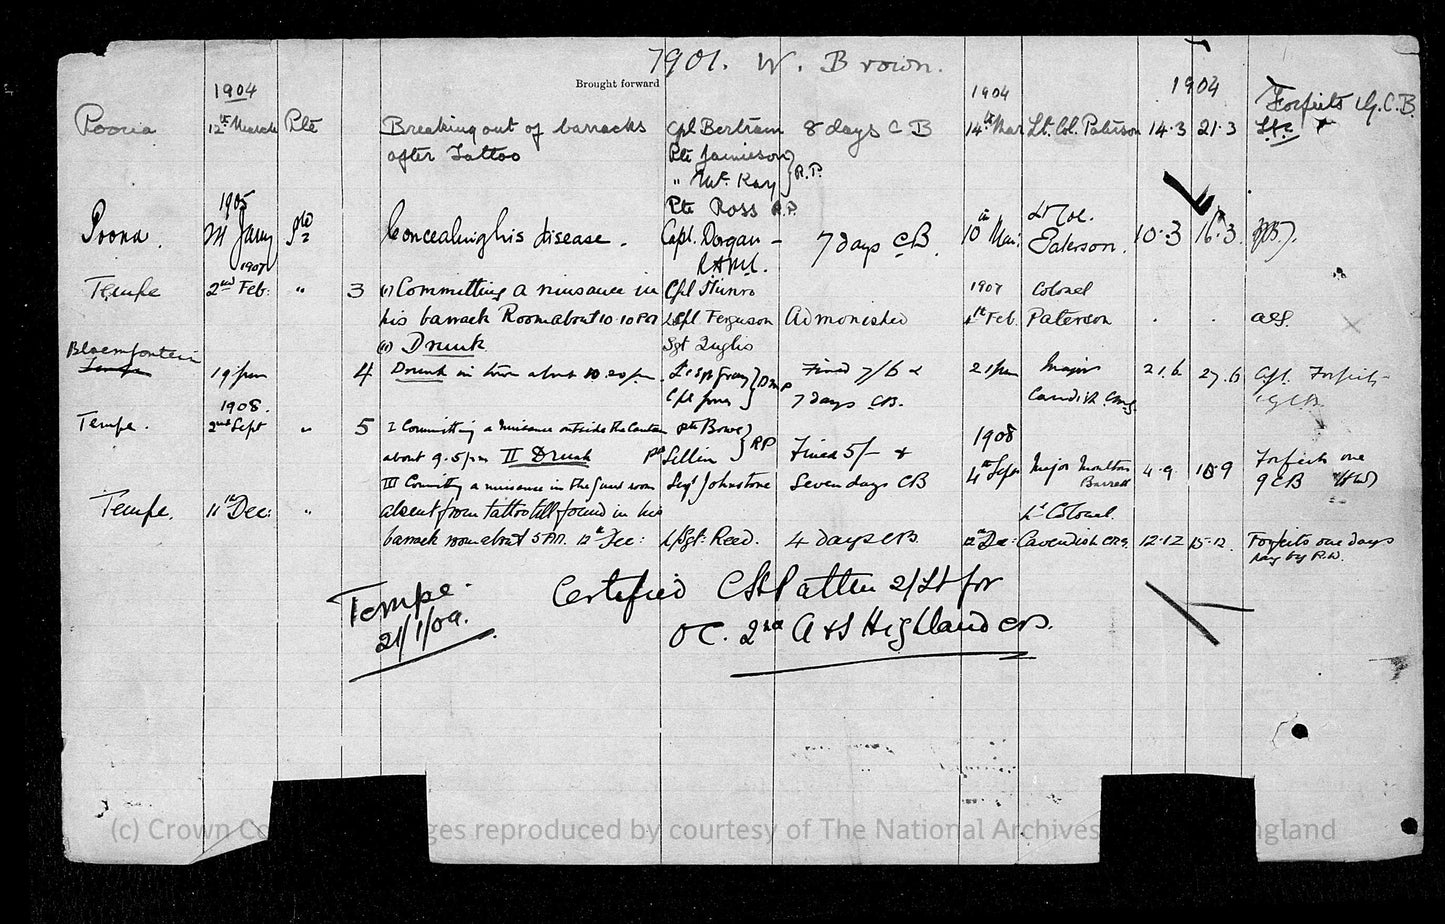 7901. W. Brown.
Brought forward
1904 1904 1904
Forfeits 1 G.C.B.
Poona 12th March Pte Breaking out of barracks Cpl Bertram 8 days C B 14th Mar Lt. Col. Paterson 14.3 21.3
after Tattoo Pte Jamieson
" McKay } R.P.
1905 Pte Ross R.P.
Lt Col.
Poona. Pte Concealing his disease. Capt. Dorgan - 7 days C.B. 10 Mar: Paterson. 10.3 16.3
1907 R.A.M.C.
Tempe 2nd Feb: " 3 (i) Committing a nuisance in Cpl Munro 1907 Colonel
his barrack Room about 10.10 PM L/Cpl. Ferguson Admonished 4th Feb. Paterson . .
(ii) Drunk. Sgt Inglis
Bloemfontein
Tempe 19 Jun 4 Drunk in town about 10.20 pm. Fined 7/6 & 21 Jun Major 21.6 27.6 Forfeits
1908. Cpl Jones 7 days CB. Cavendish Cmg
Tempe. 2nd Sept " 5 I Committing a nuisance outside the Canteen Pte Bowe } RP 1908
about 9.5 pm II Drunk Pte Fined 5/- & Forfeits one
III Committing a nuisance in the Guard room Sergt Johnstone Seven days CB 4th Sept Major Moulton Barrett 4.9 10.9 G C B
Tempe. 11th Dec: " absent from tattoo till found in his Lt Colonel.
barrack room about 5 AM. 12th Dec: L/Sgt: Reed. 4 days CB 12th Dec: Cavendish CMG. 12.12 15.12. Forfeits one days
pay by R.W.
Tempe. Certified 2/Lt for
21/1/09. OC. 2nd A & S Highlanders.
(c) Crown Co ges reproduced by courtesy of The National Archives ngland